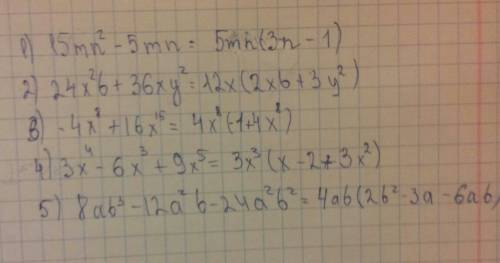 1) 15mn² - 5mn = 5mn(3n - 1)
2) 24x²b + 36xy² = 12x(2xb + 3y²)
3) -4x⁸ + 16x¹⁵ = 4x⁸(-1+4x⁸)
4) 3x⁴ - 6x³ + 9x⁵ = 3x³(x - 2 + 3x²)
5) 8ab³ - 12a²b - 24a²b² = 4ab(2b² - 3a - 6ab)